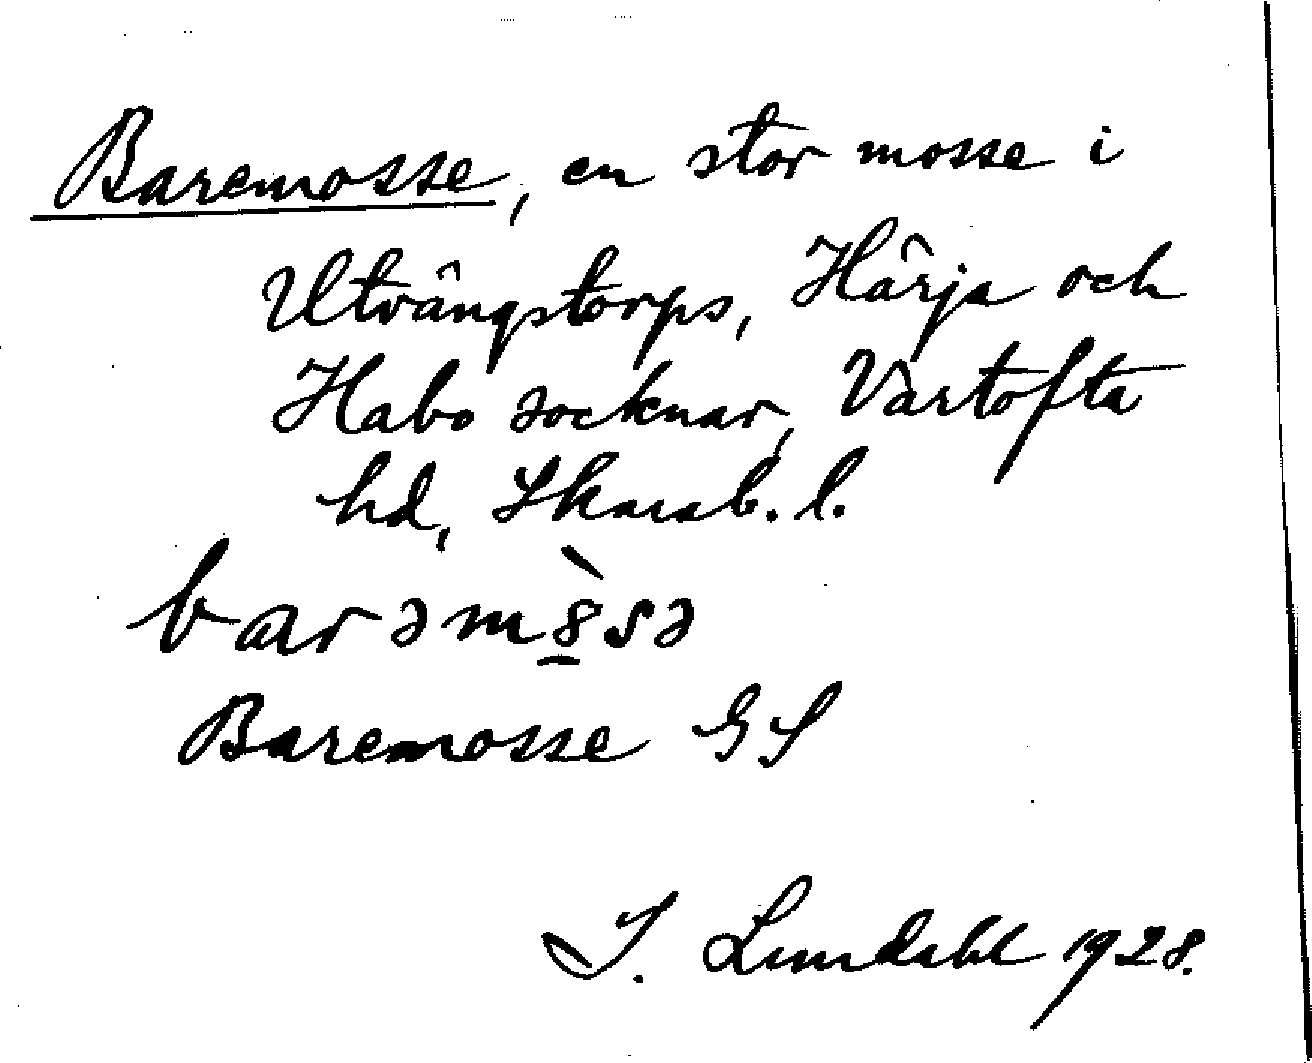 Baremosse, en stor mosse i
Utvängstorps, Härja och
Habo socknar, Vartofta
hd, Skarab. l.
barəm8̠̀sə
Baremosse GS
I. Lundahl 1928.